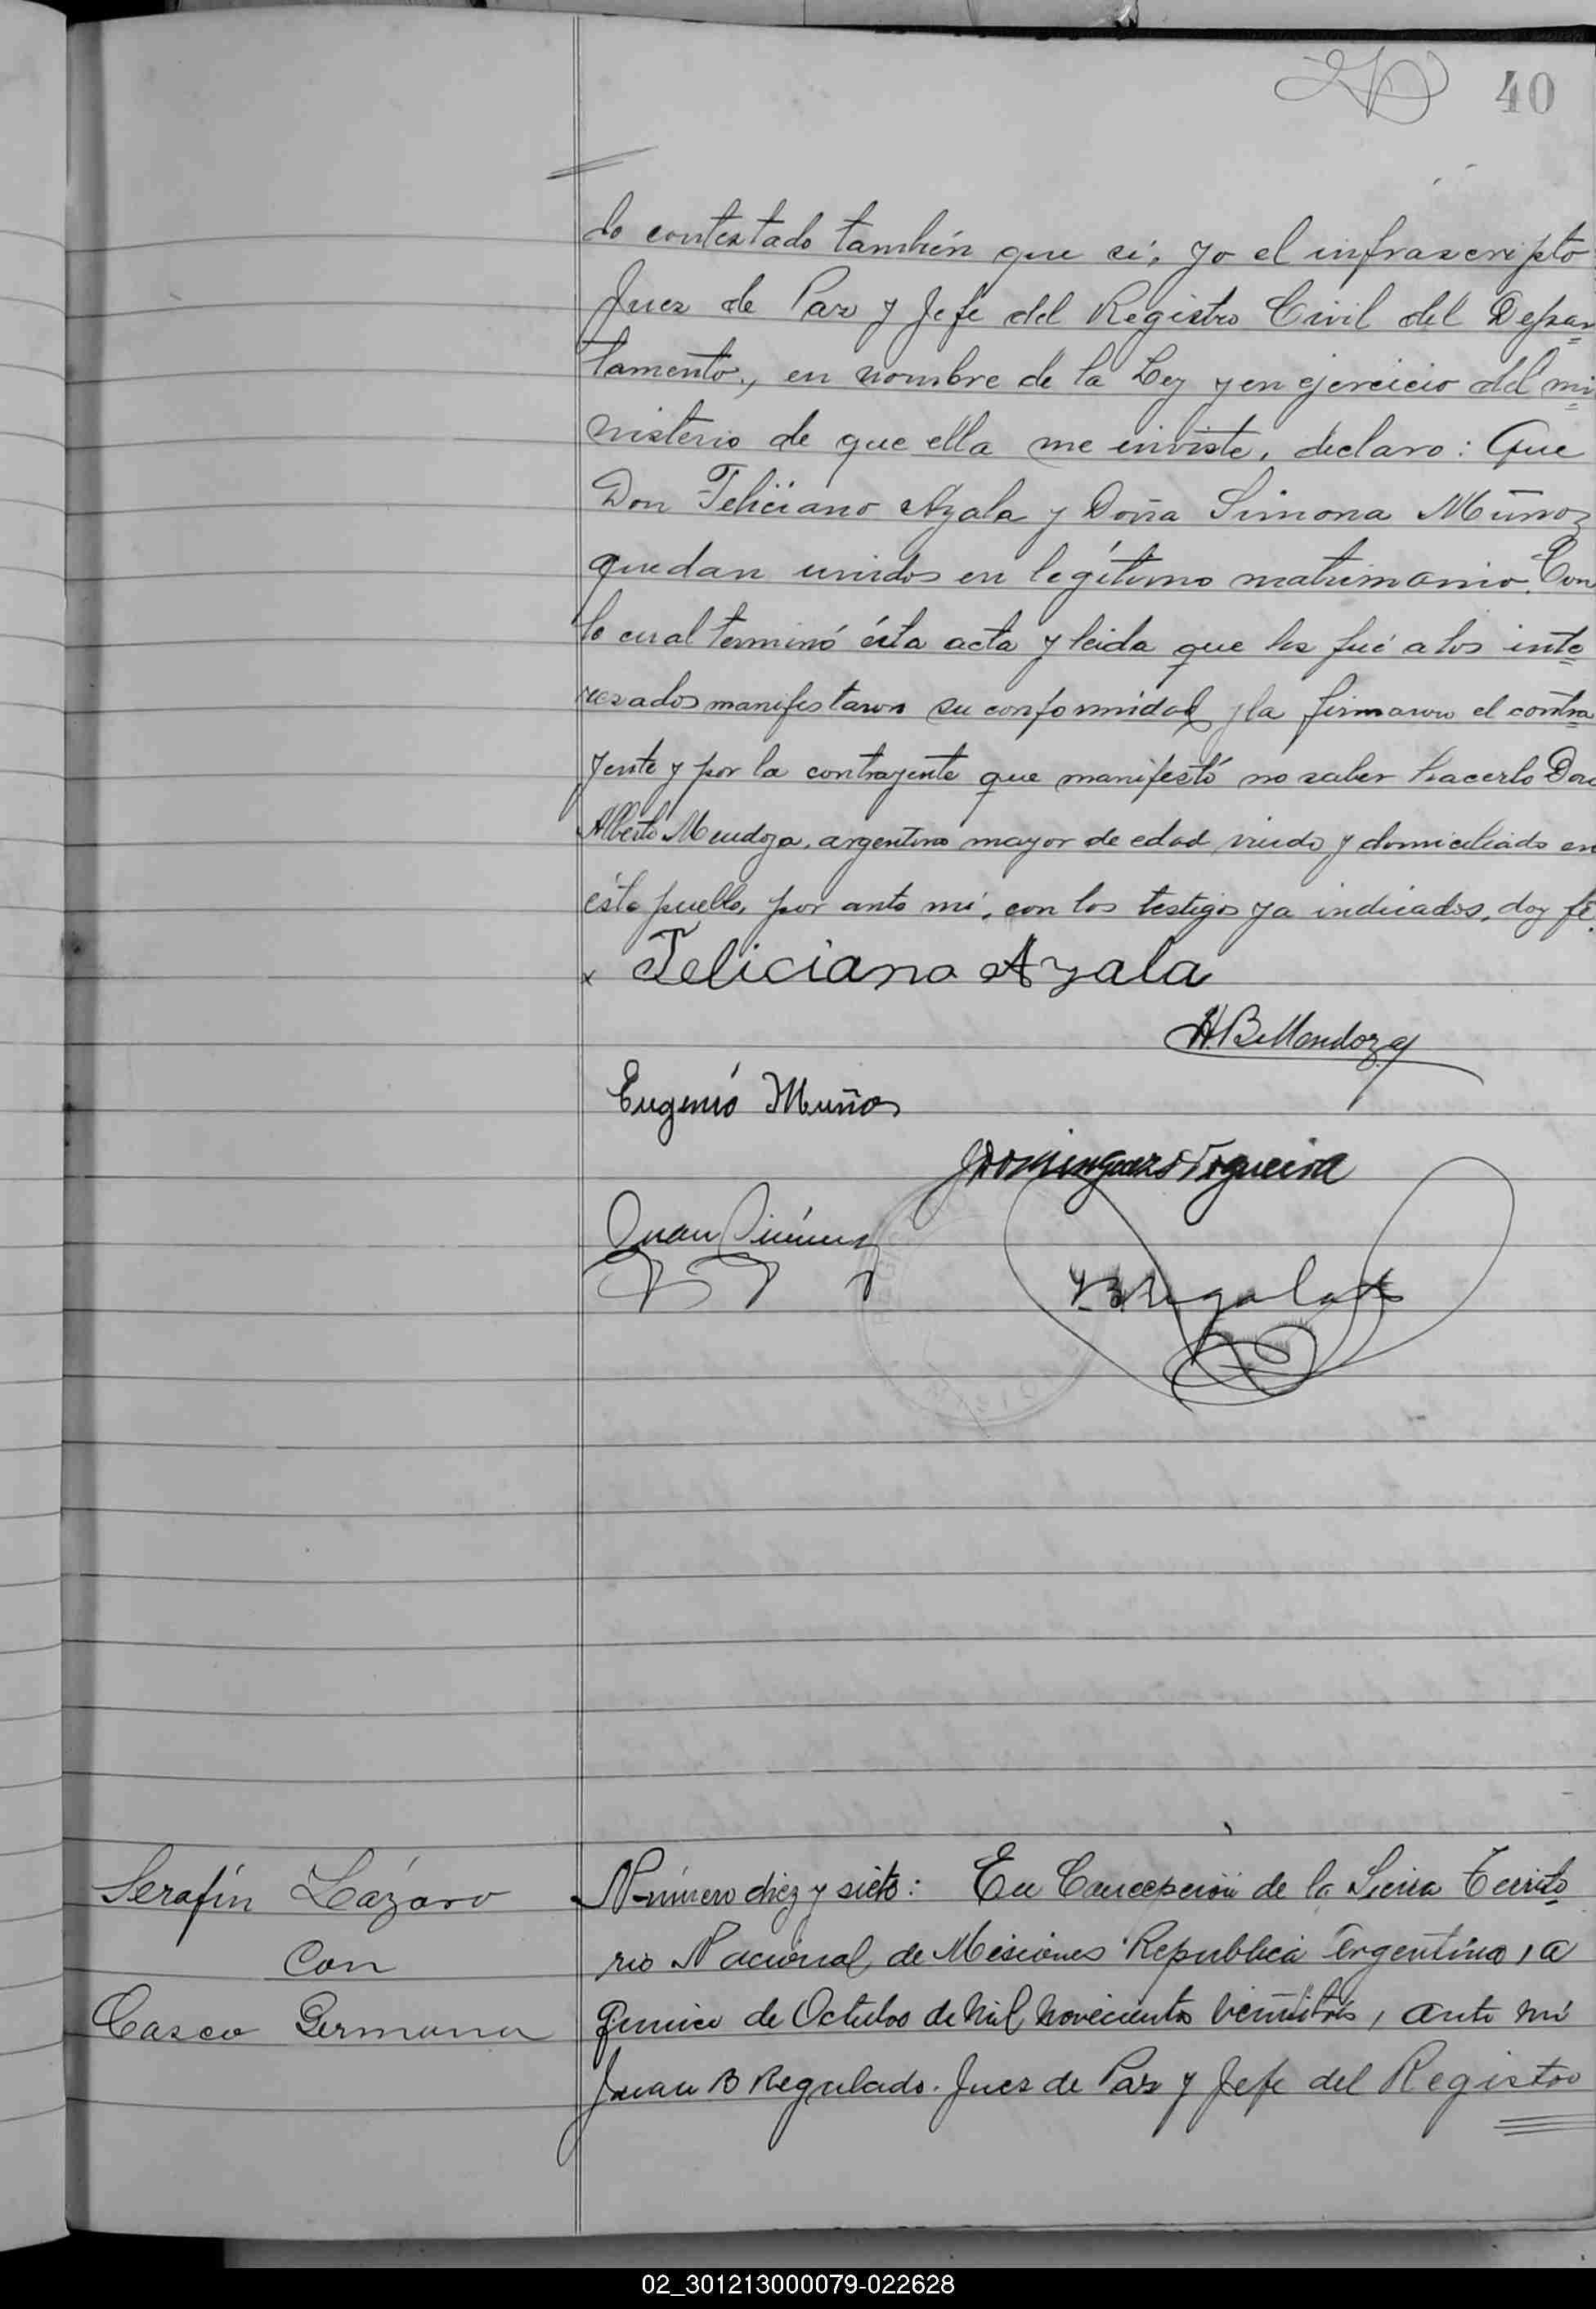 40
do contestado también que si, yo el infrascripto
Juez de Paz y Jefe del Registro Civil del Depar
tamento, en nombre de la Ley y en ejercicio del mi
nisterio de que ella me inviste, declaro: Que
Don Feliciano Ayala y Doña Simona Muñoz
quedan unidos en legítimo matrimonio. Con
lo cual terminó ésta acta y leida que les fué a los inte
resados manifestaron su conformidad y la firmaron el contra
yente y por la contrayente que manifestó no saber hacerlo Don
Alberto Mendoza, argentino mayor de edad viudo y domiciliado en
éste pueblo, por ante mi, con los testigos ya indicados, doy fé.
x Feliciano Ayala
A. B. Mendoza
Eugenio Muñoz
J Dominguez Nogueira
Juan
J B Regulado
Serafín Lázaro
con
Casco Germana
Número diez y siete: En Concepción de la Sierra Territo
rio Nacional de Misiones Republica Argentina, a
quince de Octubre de mil novecientos veintitrés, ante mí
Juan B Regulado. Juez de Paz y Jefe del Registro
02_301213000079-022628